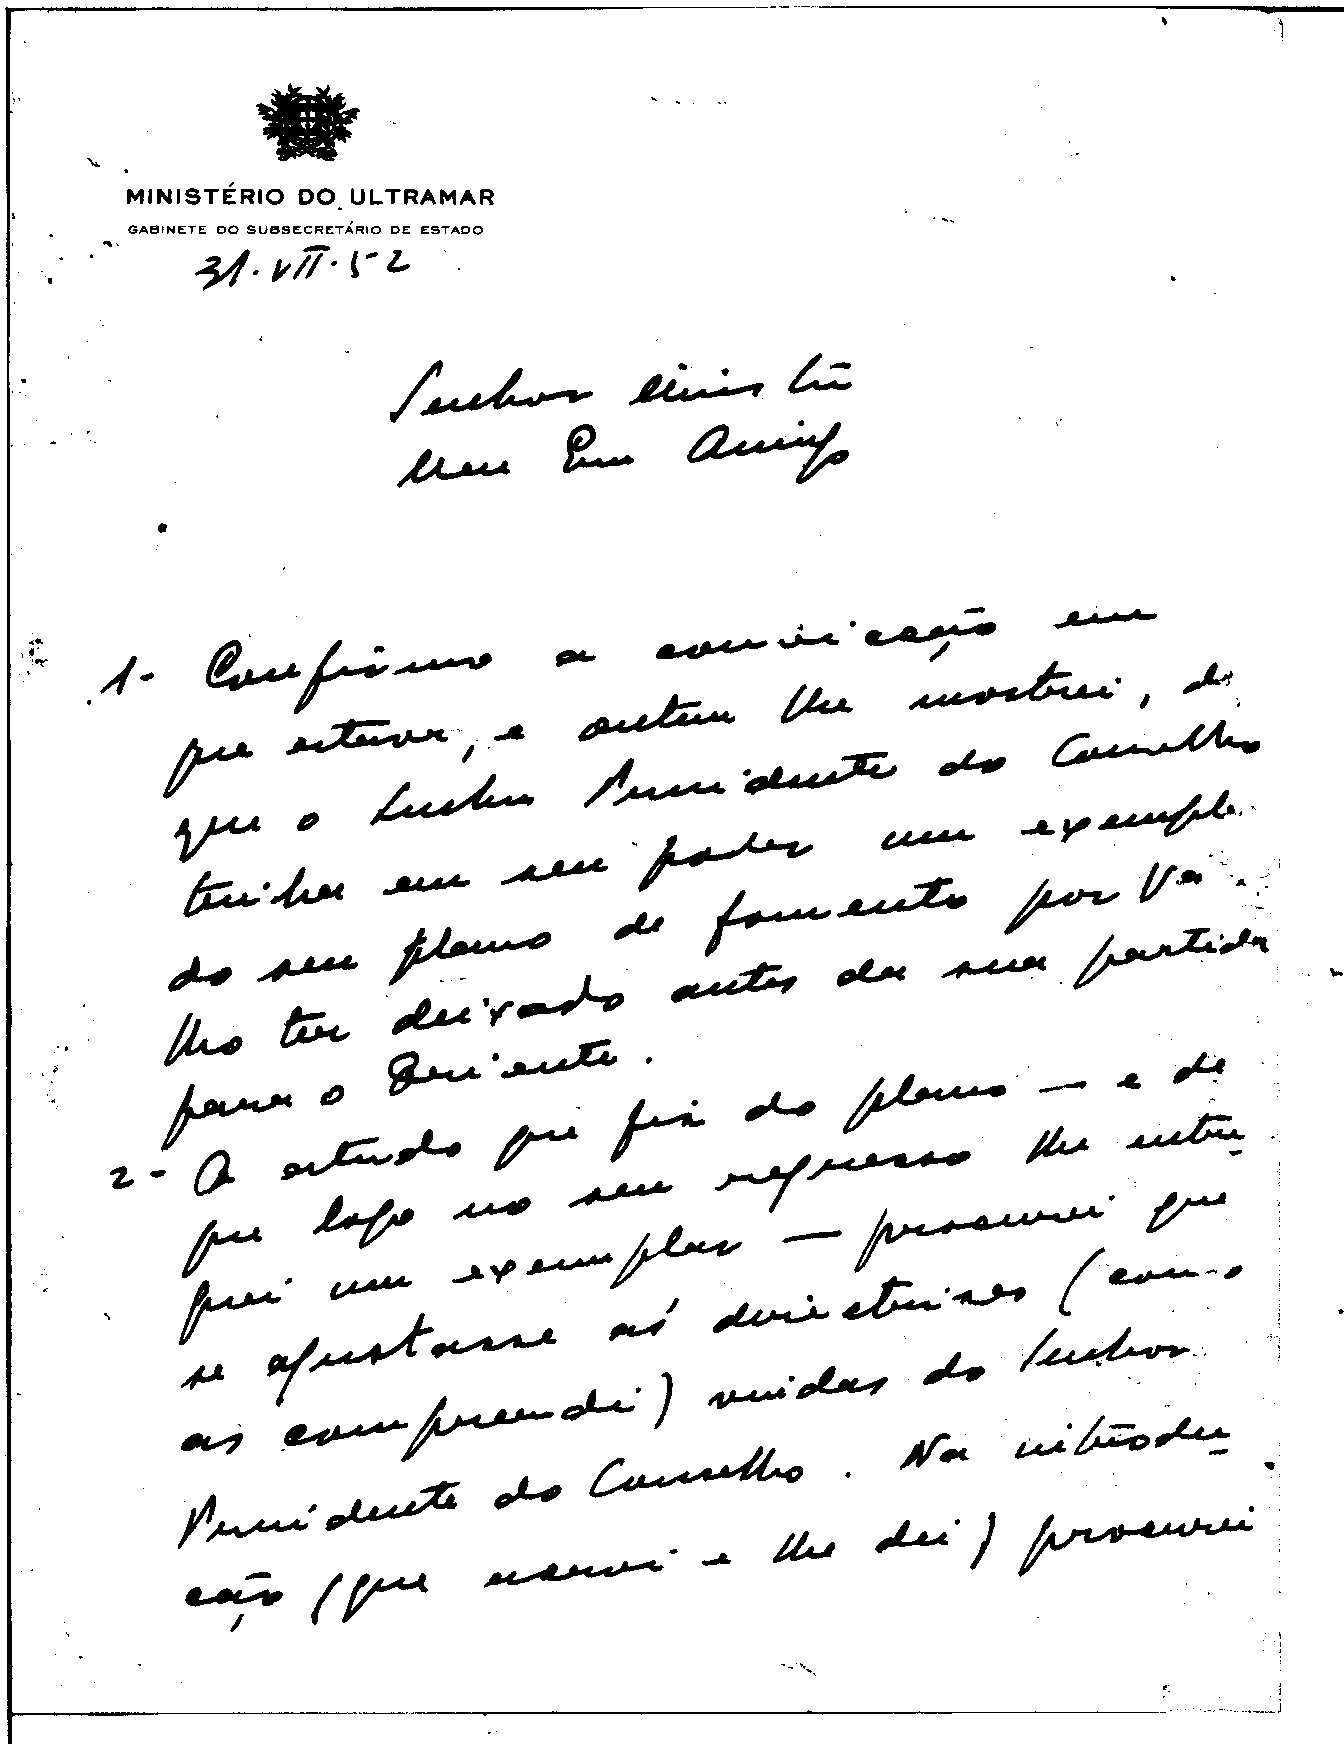 MINISTÉRIO DO ULTRAMAR
GABINETE DO SUBSECRETÁRIO DE ESTADO
31.VII.52
Senhor Ministro
Meu Amigo
1- Confirmo a convicção em
que estava, e ontem lhe mostrei, de
que o Senhor Presidente do Conselho
tenha em seu poder um exemplar
do seu plano de fomento por Va
lho ter deixado antes da sua partida
para o Oriente.
2- O estudo que fiz do plano — e de
que logo no seu regresso lhe entre-
guei um exemplar — procurei que
se ajustasse ás directrizes (como
as compreendi) vindas do Senhor
Presidente do Conselho. Na introdu-
ção (que escrevi e lhe dei) procurei